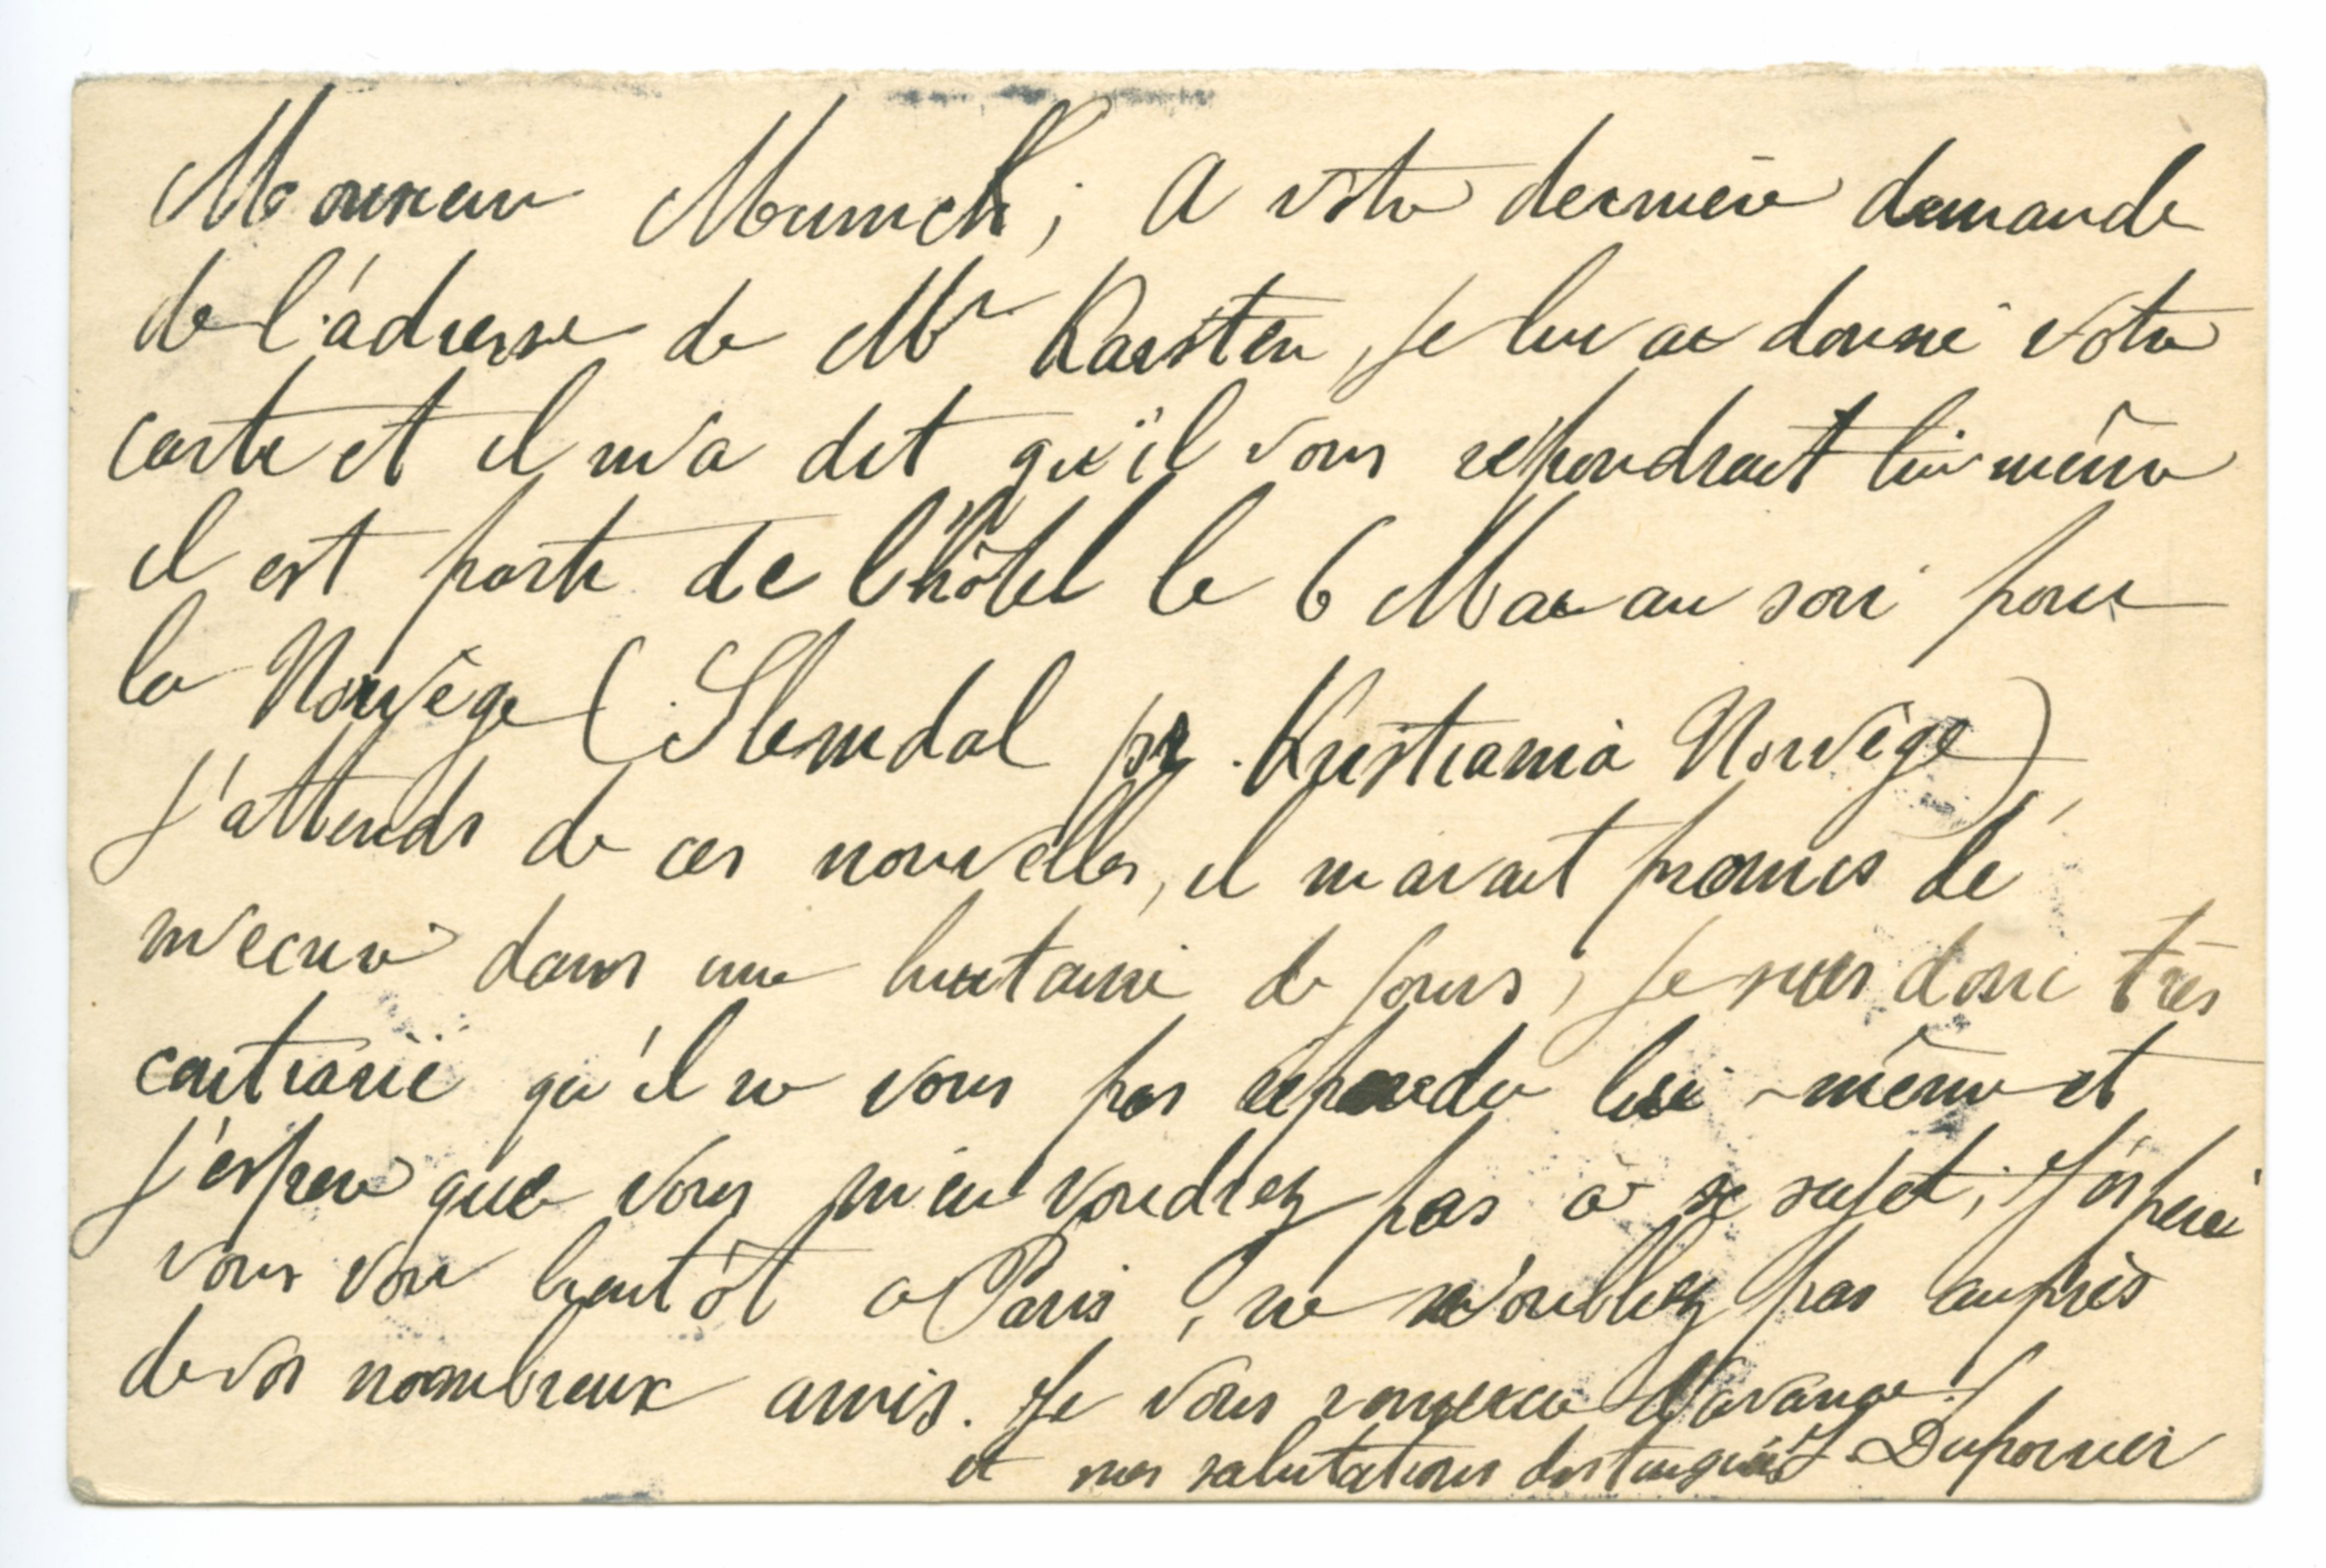 Monsieur Munch, A votre dernière demande
de l'adresse de Mr Karsten, je lui ai donné votre
carte et il m'a dit qu'il vous répondrait lui même
il est parti de l'hôtel le 6 Mai au soir pour
la Norvège (Slemdal pr. Kristiania Norvège),
j'attends de ces nouvelles, il m'avait promis de
m'ecrire dans une huitaine de jours, je suis donc très
contrarié qu'il ne vous pas répondu lui-même et
j'espere que vous m'en voudrez pas à se sujet, J'éspère
vous voir bientôt a Paris, ne m'oubliez pas auprès
de vos nombreux amis. Je vous remercie d'avance
et mes salutations distinguées J. Dupornier